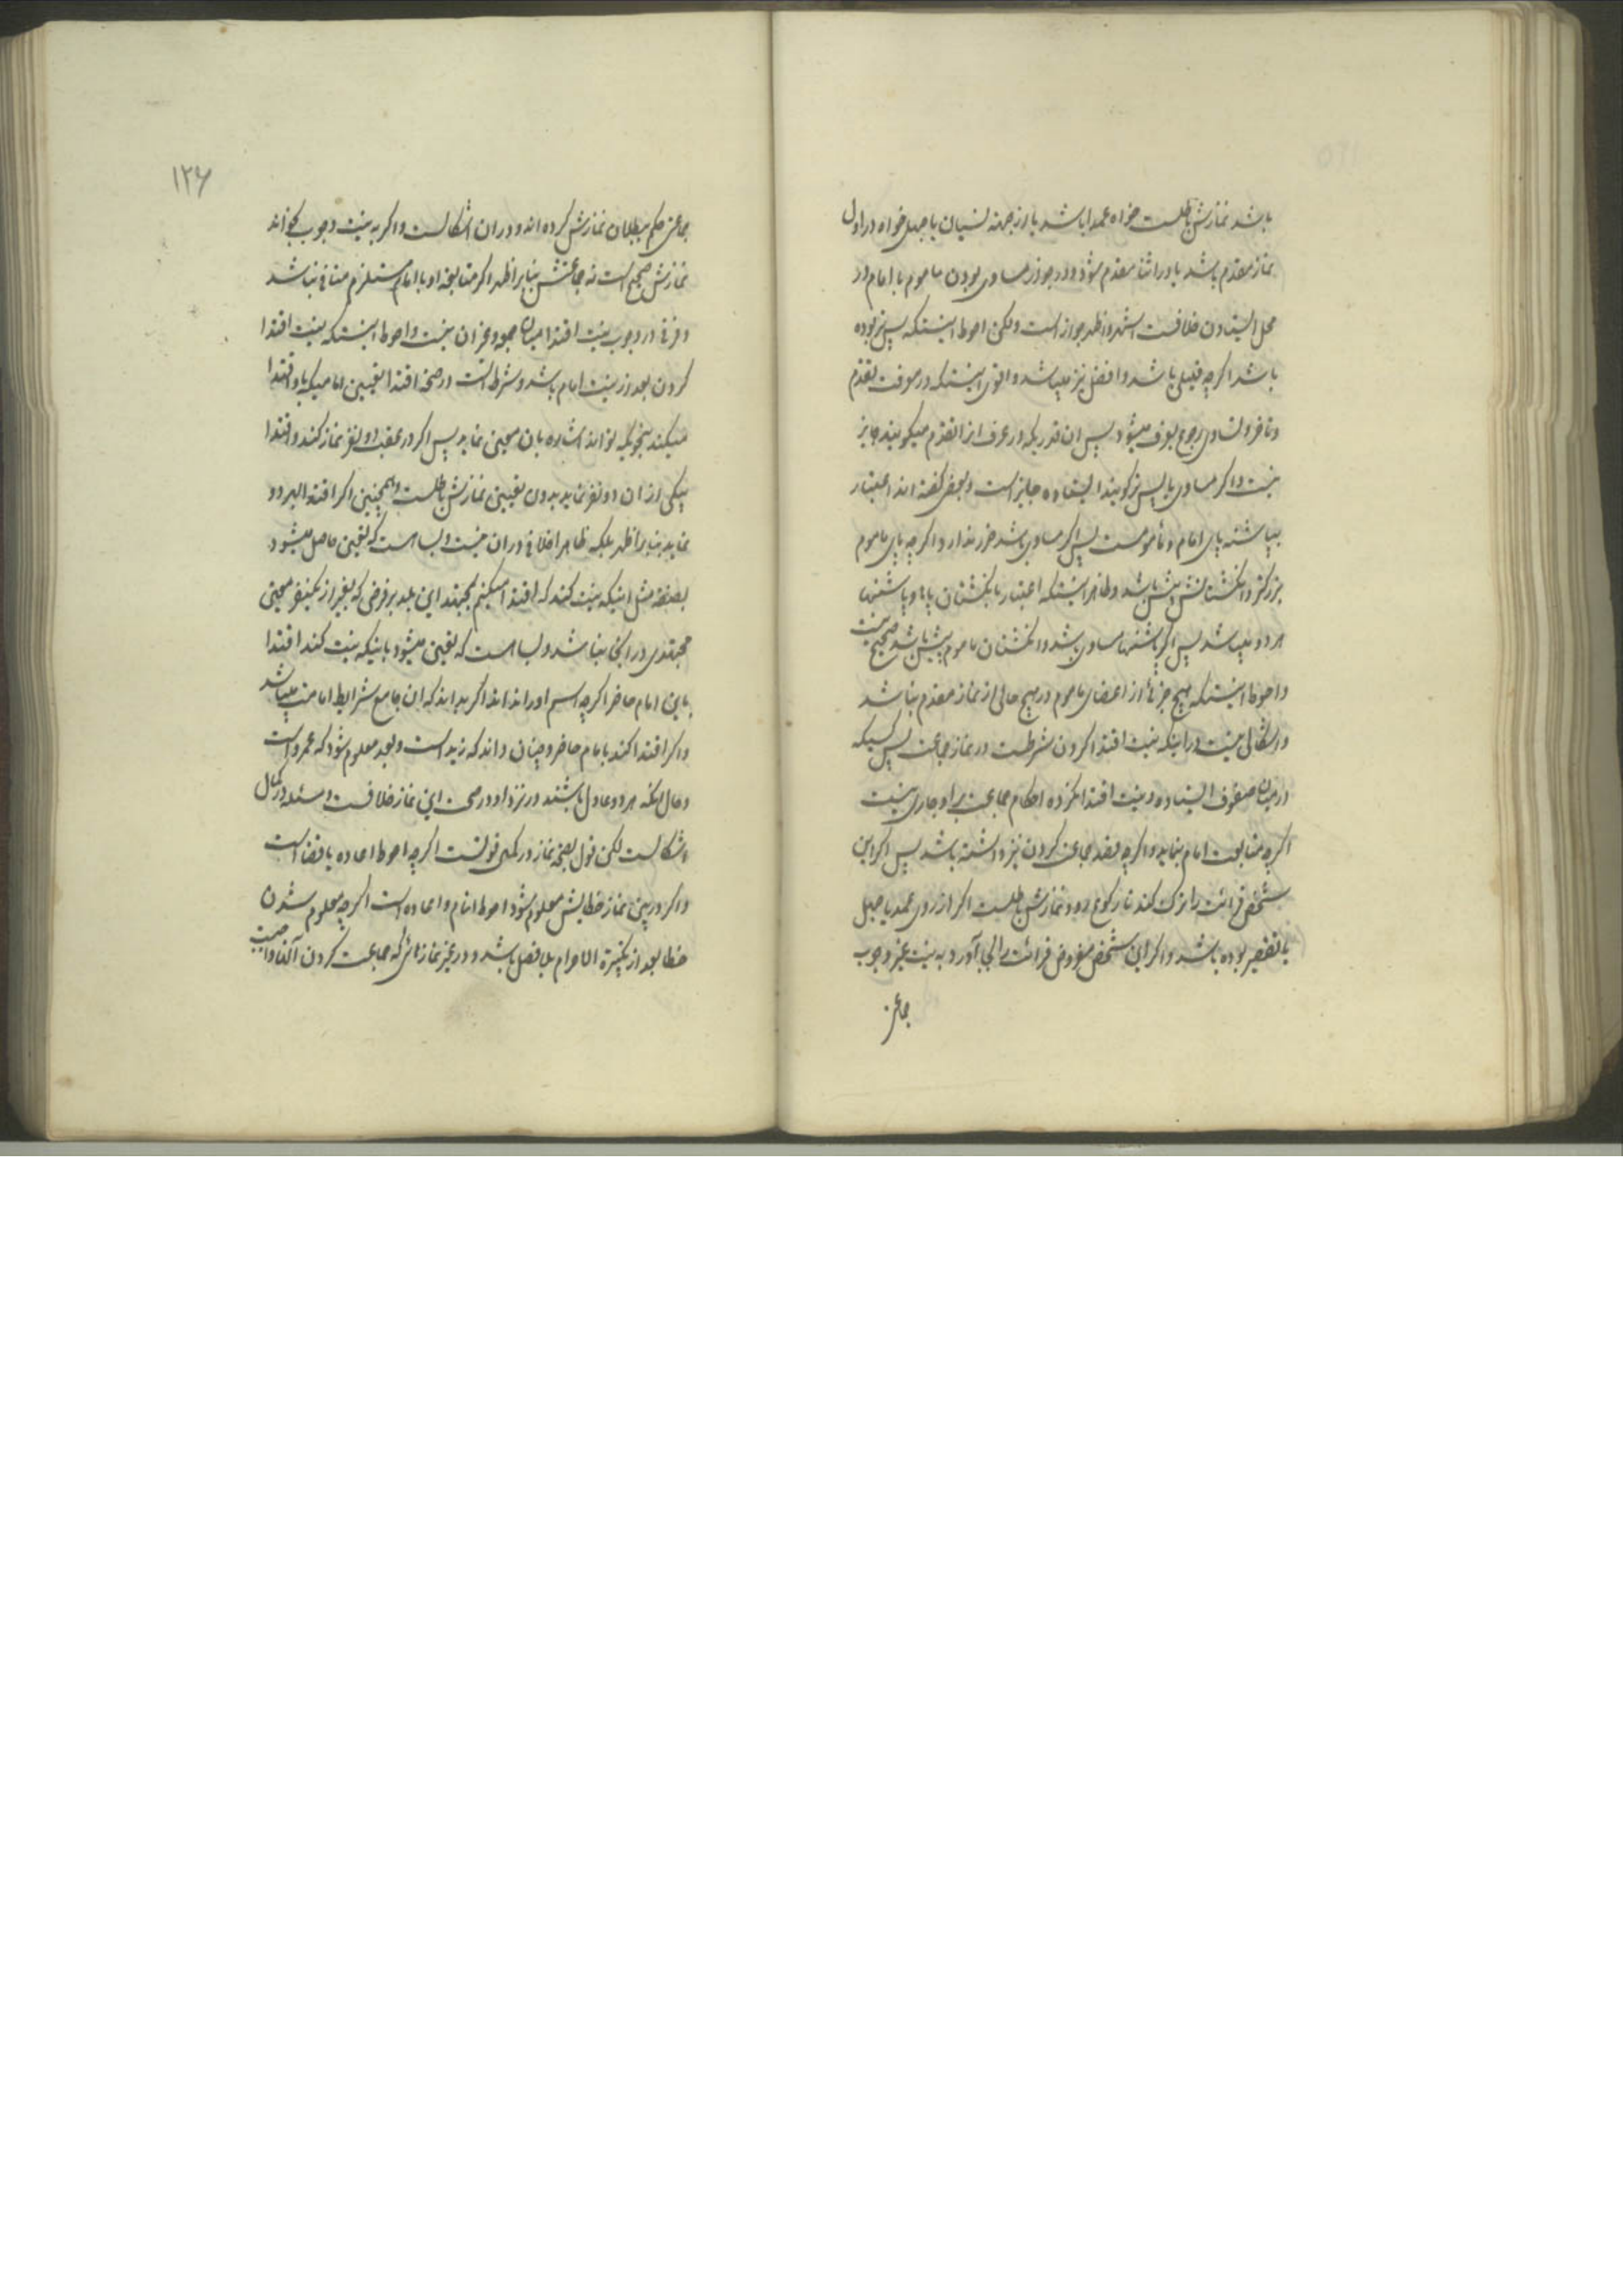 باشد نمازش باطلست خواه عمدا باشد یا از جهة نسیان یا جهل خواه در اول
نماز مقدم باشد یا در اثنا مقدم شود و در جواز مساوی بودن ماموم با امام در
محل ایستادن خلافست اشهر و اظهر جواز است ولکن احوط اینستکه پس تر بوده
باشد اکرچه قلیلی باشد و افضل نیز میباشد و اقوی اینستکه در معرفت تقدم
و تاخر و تساوی رجوع بعرف میشود پس ان قدریکه در عرف انرا تقدم میکویند جایز
نیست و اکر مساوی یا پس تر کویند ایستاده جایز است و بعضی کفته اند اعتبار
بپاشنه پای امام و مأمومست پس اکر مساوی باشد ضرر ندارد اکرچه پای ماموم
بزرکتر و انکشتانش پیش باشد و ظاهر اینستکه اعتبار بانکشتان پاها و پاشنها
هر دو میباشد پس اکر پاشنها مساوی باشد و انکشتان ماموم پیش باشد صحیح نیست
و احوط اینستکه هیچ جزئی از اعضای ماموم در هیچ حالی از نماز مقدم نباشد
و اشکالی نیست در اینکه نیت اقتدا کردن شرطست در نماز جماعت پس کسیکه
در میان صفوف ایستاده و نیت اقتدا نکرده احکام جماعت بر او جاری نیست
اکرچه متابعت امام بنماید و اکرچه قصد جماعت کردن نیز داشته باشد پس اکر این
شخص قرائت را ترک کند تا رکوع رود نمازش باطلست اکر از روی عمد یا جهل
با تقصیر بوده باشد و اکر این شخص مفروض قرائت را بجا آورد به نیت غیر وجوب
جماعتی
۱۲۶
جماعتی حکم ببطلان نمازش کرده اند و در ان اشکالست و اکر به نیت وجوب بخواند
نمازش صحیح است نه جماعتش بنا بر اظهر اکر متابعة او با امام مستلزم منافی نباشد
و فرقی در وجوب نیت اقتدا میان جمعه و غیر ان نیست و احوط اینستکه نیت اقتدا
کردن بعد از نیت امام باشد و شرط است در صحة اقتدا تعیین امامیکه باو اقتدا
میکند بنحویکه تواند اشاره بان معین نماید پس اکر در عقب دو نفر نماز کند و اقتدا
بیکی از ان دو نفر نماید بدون تعیین نمازش باطلست و همچنین اکر اقتدا بهر دو
نماید بنا بر اظهر بلکه ظاهرا خلافی در ان نیست و بسا هست که تعیین حاصل میشود
بصفة مثل اینکه نیت کند که اقتدا میکنم بمجتهد این بلد بر فرضی که بغیر از یکنفر معین
مجتهدی در انجا نباشد و بسا هست که تعیین میشود باینکه نیت کند اقتدا
باین امام حاضر اکرچه اسم او را نداند اکر بداند که ان جامع شرایط امامت میباشد
و اکر اقتدا کند بامام حاضر و چنان داند که زید است و بعد معلوم شود که عمرو است
و حال انکه هر دو عادل باشند در نزد او در صحت این نماز خلافست و مسئله در کمال
اشکالست لکن قول بصحة نماز در کمال قوتست اکرچه احوط اعاده یا قضا است
و اکر در بین نماز خطایش معلوم شود احوط اتمام و اعاده است اکرچه معلوم شدن
خطا بعد از تکبیرة الاحرام بلا فصل باشد و در غیر نمازهائی که جماعت کردن آنها واجبست